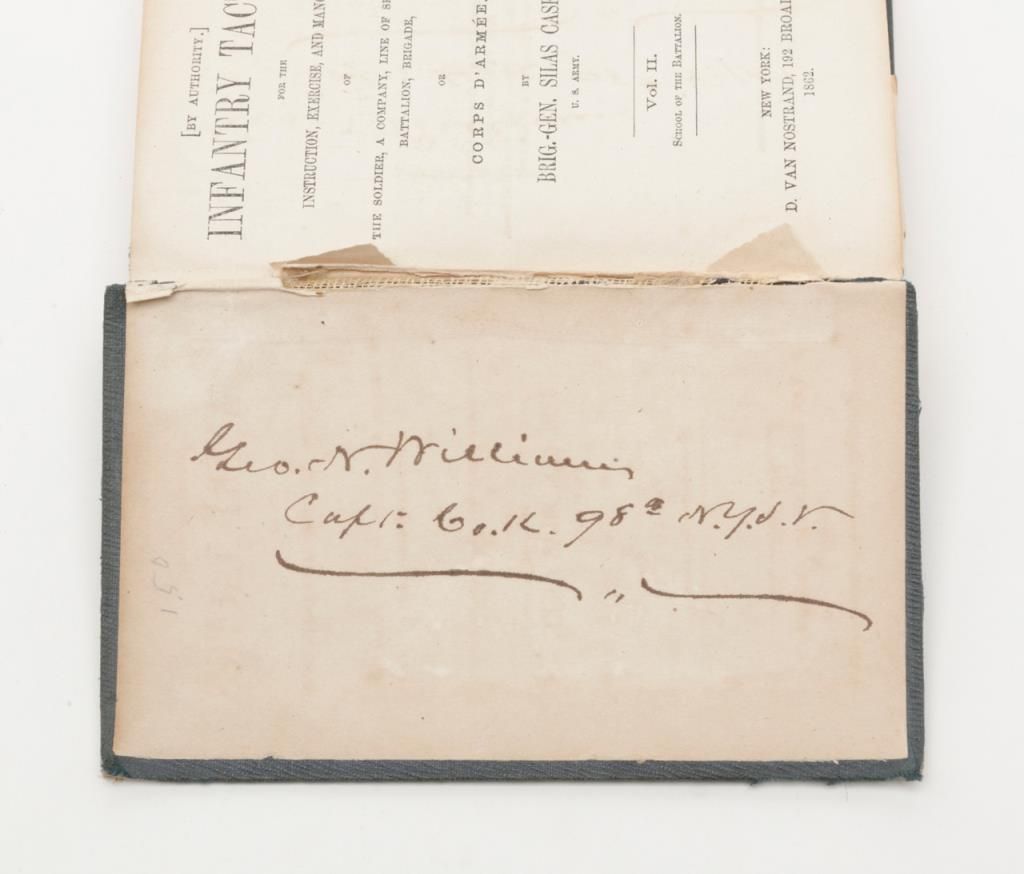 [BY AUTHORITY.]
INFANTRY TAC
FOR THE
INSTRUCTION, EXERCISE, AND MANŒ
OF
THE SOLDIER, A COMPANY, LINE OF SK
BATTALION, BRIGADE,
OR
CORPS D'ARMÉE.
BY
BRIG.-GEN. SILAS CASE
U. S. ARMY.
Vol. II.
School of the Battalion.
NEW YORK:
D. VAN NOSTRAND, 192 BROAD
1862.
Geo. N. Williams
Capt. Co. K. 98th N.Y.S.V.
1.50